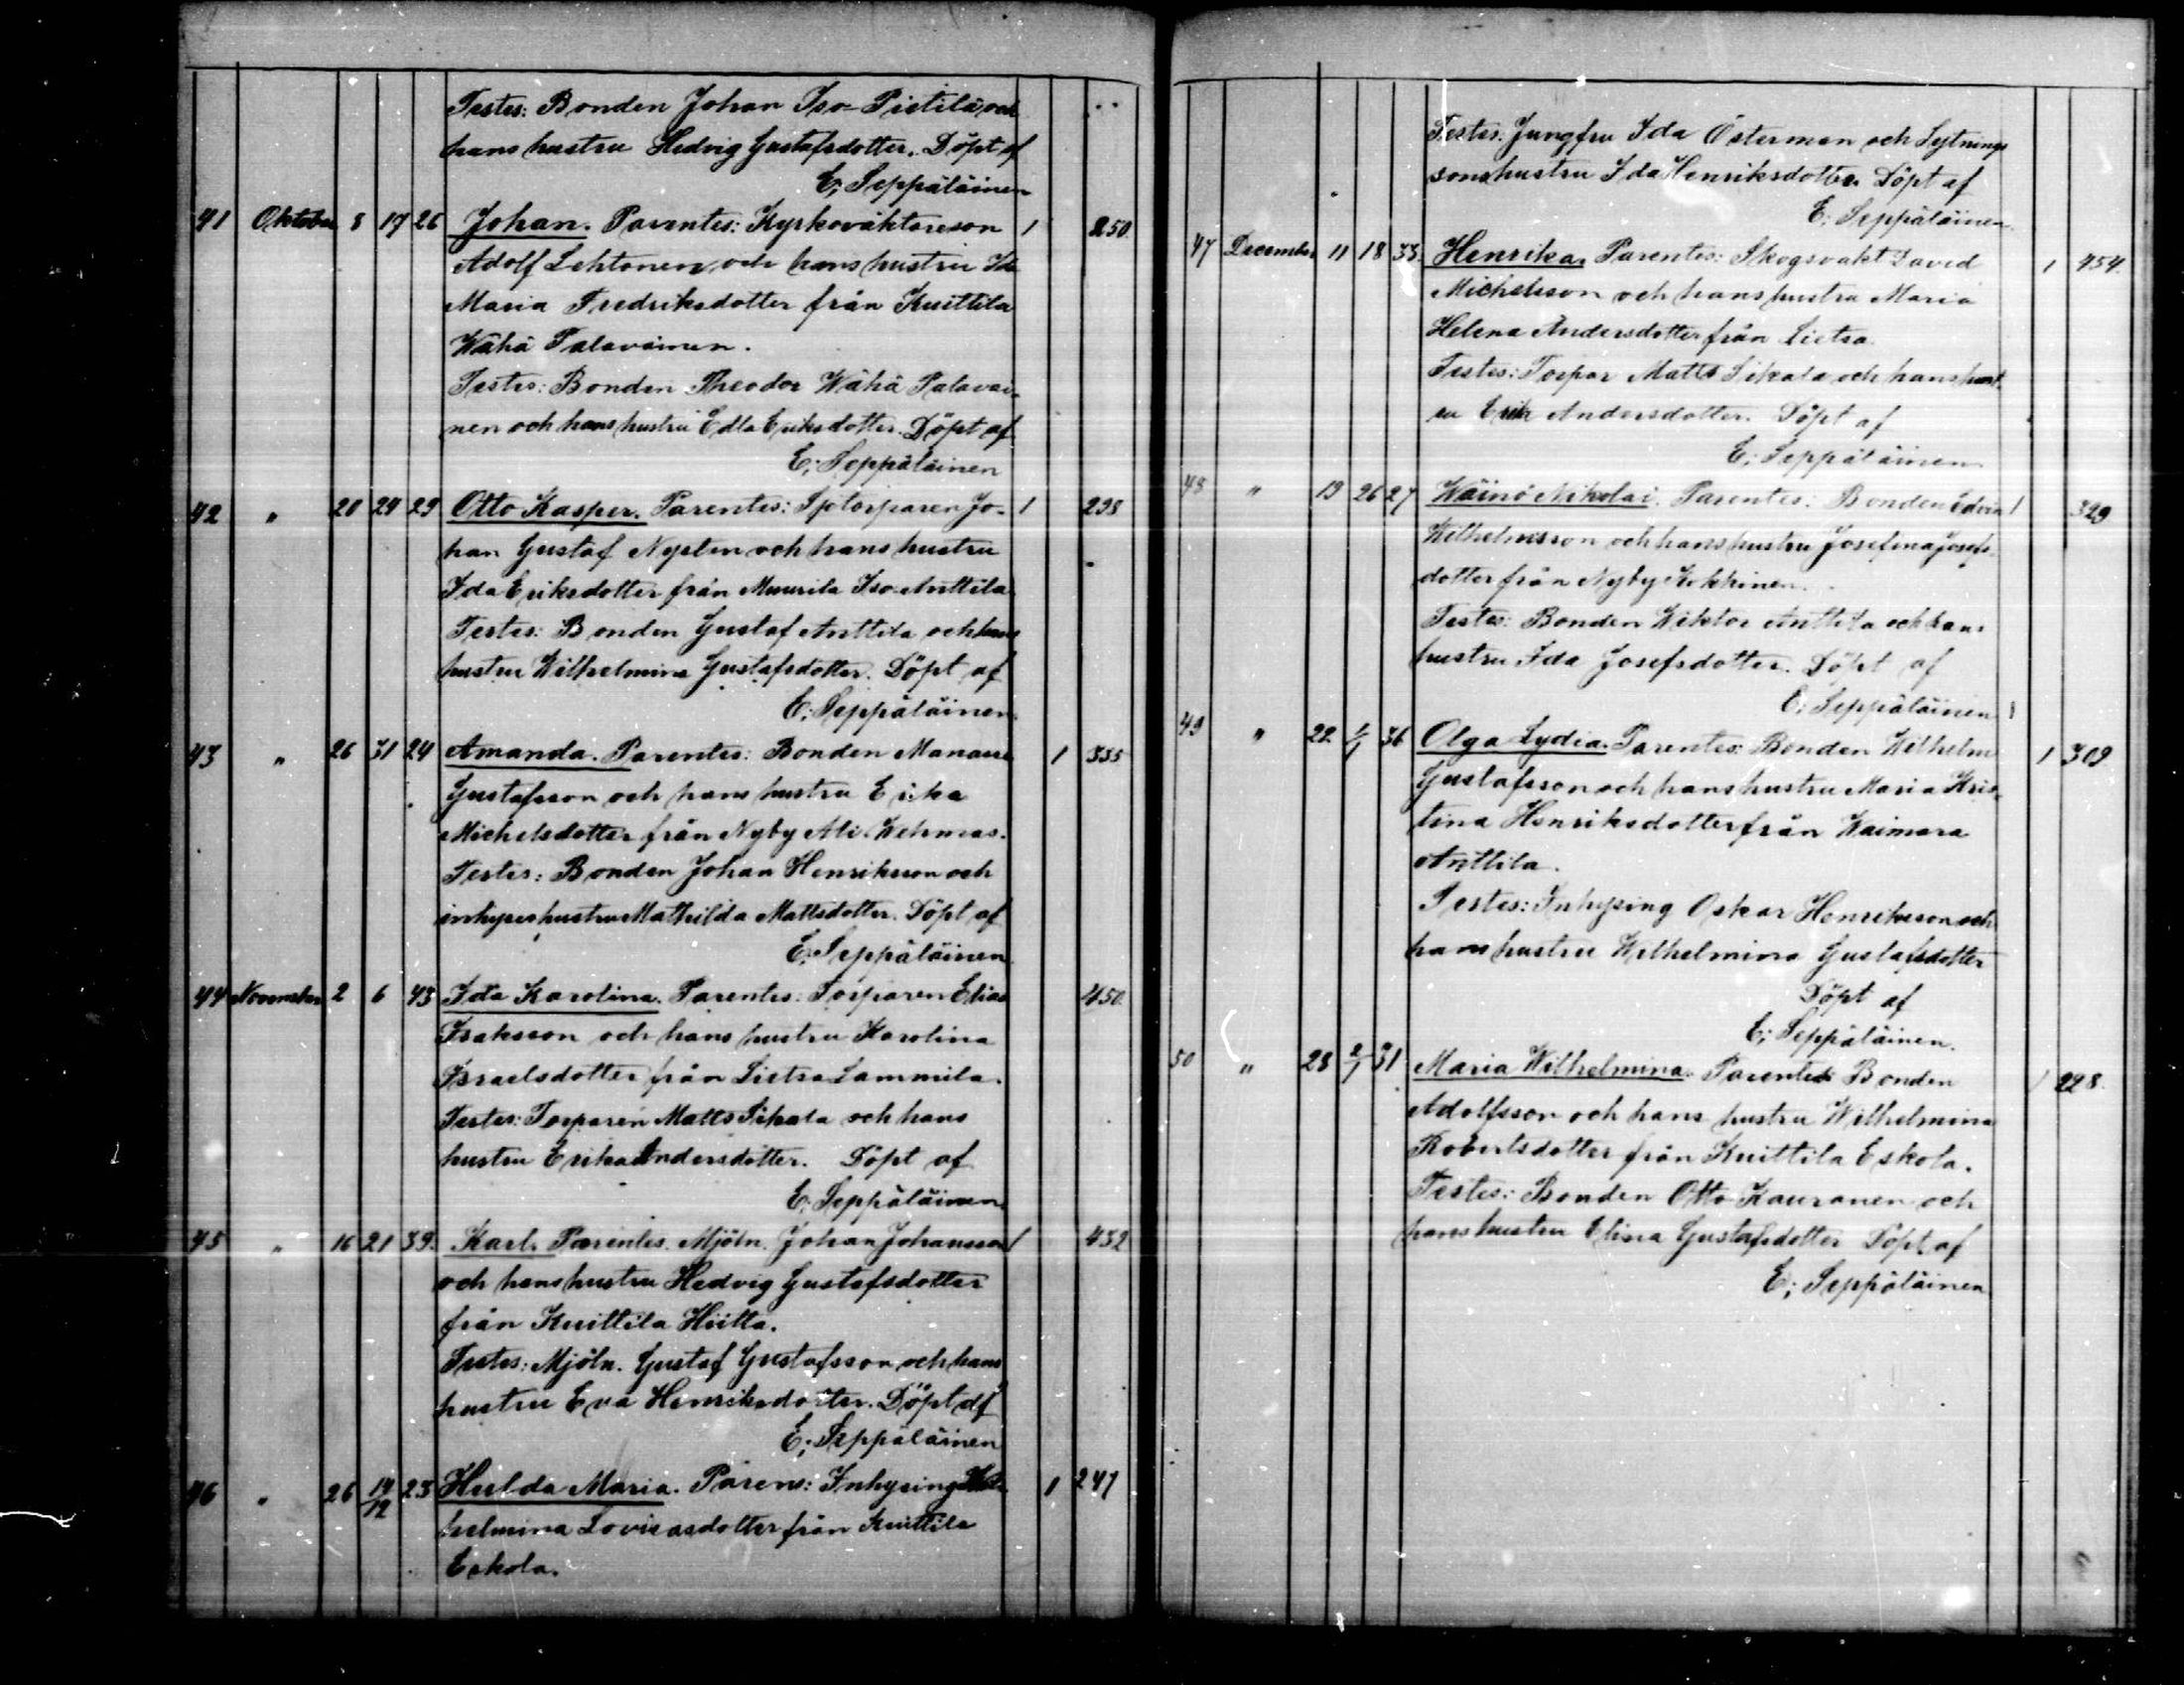 Testes: Bonden Johan Iso-Pietilä och
hans hustru Hedvig Gustafsdotter. Döpt af
E; Seppäläinen
41 Oktober 8 17 26 Johan. Parentes: Kyrkoväktareson 1 250.
Adolf Lehtonen och hans hustru Ida
Maria Fredriksdotter från Knittila
Wähä Talavainen.
Testes: Bonden Theodor Wähä Palavai-
nen och hans hustru Edla Eriksdotter. Döpt af
E; Seppäläinen
42 " 20 24 29 Otto Kasper. Parentes: Sptorparen Jo- 1 298
han Gustaf Nysten och hans hustru
Ida Eriksdotter från Muurila Iso-Anttila
Testes: Bonden Gustaf Anttila och hans
hustru Wilhelmina Gustafsdotter. Döpt af
E; Seppäläinen.
43 " 26 31 24 Amanda. Parentes: Bonden Manasse 1 335
Gustafsson och hans hustru Erika
Michelsdotter från Nyby Ali-Wehmas.
Testes: Bonden Johan Henriksson och
inhyses hustru Mathilda Mattsdotter. Döpt af
E; Seppäläinen
44 November 2 6 43 Ida Karolina. Parentes: Torparen Elias 450.
Isaksson och hans hustru Karolina
Israelsdotter från Lietsa Lammila.
Testes: Torparen Matts Sikala och hans
hustru Erika Andersdotter. Döpt af
E; Seppäläinen
45 " 16 21 39. Karl. Parentes. Mjöln. Johan Johansson 1 432
och hans hustru Hedvig Gustafsdotter
från Knittila Hiitta.
Testes: Mjöln. Gustaf Gustafsson och hans
hustru Eva Henriksdotter. Döpt af
E; Seppäläinen
46 " 26 19/12 23 Hulda Maria. Parens: Inhysing Wil- 1 247
helmina Lovisasdotter från Knittila
Eskola.
Testes: Jungfru Ida Österman och Sytnings
sonshustru Ida Henriksdotter. Döpt af
E; Seppäläinen.
47 December 11 18 33. Henrika. Parentes: Skogsvakt David 1 454.
Michelsson och hans hustru Maria
Helena Andersdotter från Lietsa
Testes: Torpar Matts Sikala och hans hust
ru Erika Andersdotter. Döpt af
E; Seppäläinen.
48 " 19 26 27 Wäinö Nikolai. Parentes: Bonden Edvin 1 329
Wilhelmsson och hans hustru Josefina Josefs-
dotter från Nyby Kokkinen.
Testes: Bonden Wiktor Anttila och hans
hustru Ida Josefsdotter. Döpt af
E; Seppäläinen
49 " 22 1/1 36 Olga Lydia. Parentes: Bonden Wilhelm 1 309
Gustafsson och hans hustru Maria Kris-
tina Henriksdotter från Waimara
Anttila.
Testes: Inhysing Oskar Henriksson och
hans hustru Wilhelmina Gustafsdotter
Döpt af
E; Seppäläinen.
50 " 28 2/1 31 Maria Wilhelmina. Parentes: Bonden 1 228.
Adolfsson och hans hustru Wilhelmina
Robertsdotter från Knittila Eskola.
Testes: Bonden Otto Kauranen och
hans hustru Elina Gustafsdotter Döpt af
E; Seppäläinen